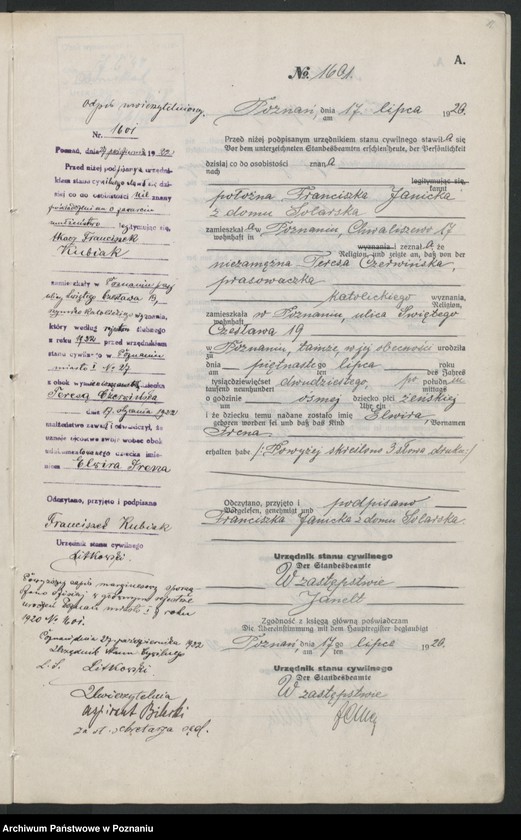 A.
No. 1601.
Poznań, dnia 17 lipca 1920.
am
Przed niżej podpisanym urzędnikiem stanu cywilnego stawiła się
Vor dem unterzeichneten Standesbeamten erschien heute, der Persönlichkeit
dzisiaj co do osobistości znana
nach
legitymując się,
kannt
położna Franciszka Janicka
z domu Solarska
zamieszkała w Poznaniu Chwaliszewo 17
wohnhaft in
wyznania i zeznała że
Religion, und zeigte an, daß von der
niezamężna Teresa Czerwińska,
pracowaczka
katolickiego wyznania,
Religion,
zamieszkała w Poznaniu, ulica Świętego
wohnhaft
Czesława 19
w Poznaniu, tamże, w jej obecności urodziła
zu
dnia piętnastego lipca roku
am ten des Jahres
tysiącdziewięćset dwudziestego, po południu
tausend neunhundert mittags
o godzinie ósmej dziecko płci żeńskiej
um Uhr ein
i że dziecku temu nadane zostało imię Elwira
geboren worden sei und daß das Kind Vornamen
Irena
erhalten habe /: Powyżej skreślono 3 słowa druku :/
Odczytano, przyjęto i podpisano
Vorgelesen, genehmigt und
Franciszka Janicka z domu Solarska.
Urzędnik stanu cywilnego
Der Standesbeamte
W zastępstwie
Janelt
Zgodność z księgą główną poświadczam
Die Übereinstimmung mit dem Hauptregister beglaubigt
Poznań, dnia 17 go lipca 1920.
am ten
Urzędnik stanu cywilnego
Der Standesbeamte
W zastępstwie
Odpis uwierzytelniony.
Nr. 1601
Poznań, dnia 27 października 1932
Przed niżej podpisanym urzędni-
kiem stanu cywilnego stawił się dzi-
siaj co do osobistości
legitymując się,
Franciszek
Kubiak
zamieszkały w Poznaniu przy
ulicy Świętego Czesława 19,
rzymsko katolickiego wyznania,
który według rejestru ślubnego
z roku 1932 przed urzędnikiem
stanu cywilnego w Poznaniu
miasto I Nr 27
z obok wymienioną matką dziecka
Teresą Czerwińską
dnia 17 stycznia 1932
małżeństwo zawarł i oświadczył, że
uznaje ojcostwo swoje wobec obok
imio-
nami Elwira Irena
Odczytano, przyjęto i podpisano
Franciszek Kubiak
Urzędnik stanu cywilnego
Litkowski
Powyższy zapis marginesowy sporzą-
dzono dzisiaj w głównym rejestrze
urodzeń Poznań miasto I z roku
1920 Nr 1601.
Poznań dnia 27 października 1932
Urzędnik Stanu Cywilnego
L. S. Litkowski.
Uwierzytelnia
aspirant Bilecki
za st. sekretarza sąd.
Archiwum Państwowe w Poznaniu